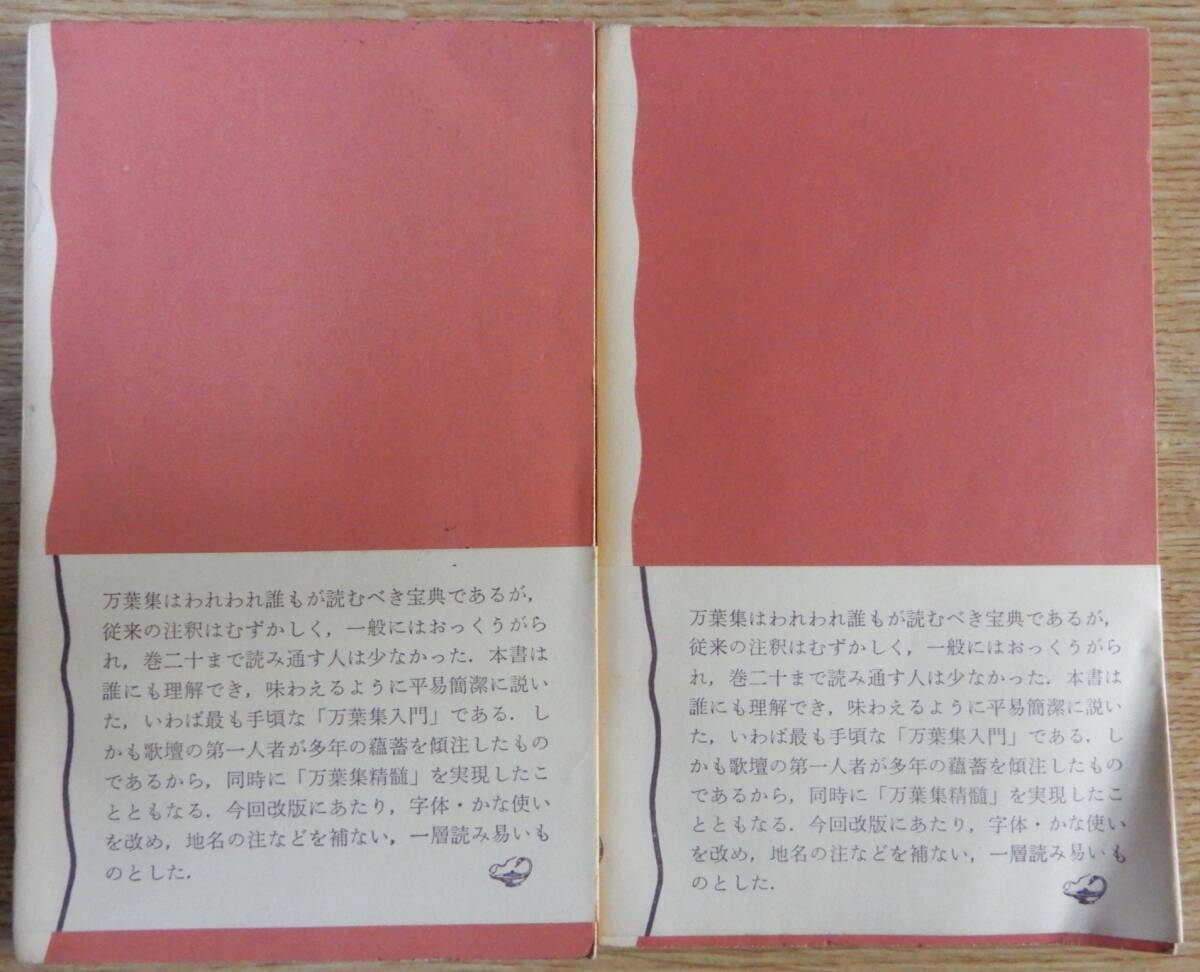 万葉集はわれわれ誰もが読むべき宝典であるが，
従来の注釈はむずかしく，一般にはおっくうがら
れ，巻二十まで読み通す人は少なかった．本書は
誰にも理解でき，味わえるように平易簡潔に説い
た，いわば最も手頃な「万葉集入門」である．し
かも歌壇の第一人者が多年の蘊蓄を傾注したもの
であるから，同時に「万葉集精髄」を実現したこ
とともなる．今回改版にあたり，字体・かな使い
を改め，地名の注などを補ない，一層読み易いも
のとした．
万葉集はわれわれ誰もが読むべき宝典であるが，
従来の注釈はむずかしく，一般にはおっくうがら
れ，巻二十まで読み通す人は少なかった．本書は
誰にも理解でき，味わえるように平易簡潔に説い
た，いわば最も手頃な「万葉集入門」である．し
かも歌壇の第一人者が多年の蘊蓄を傾注したもの
であるから，同時に「万葉集精髄」を実現したこ
とともなる．今回改版にあたり，字体・かな使い
を改め，地名の注などを補ない，一層読み易いも
のとした．